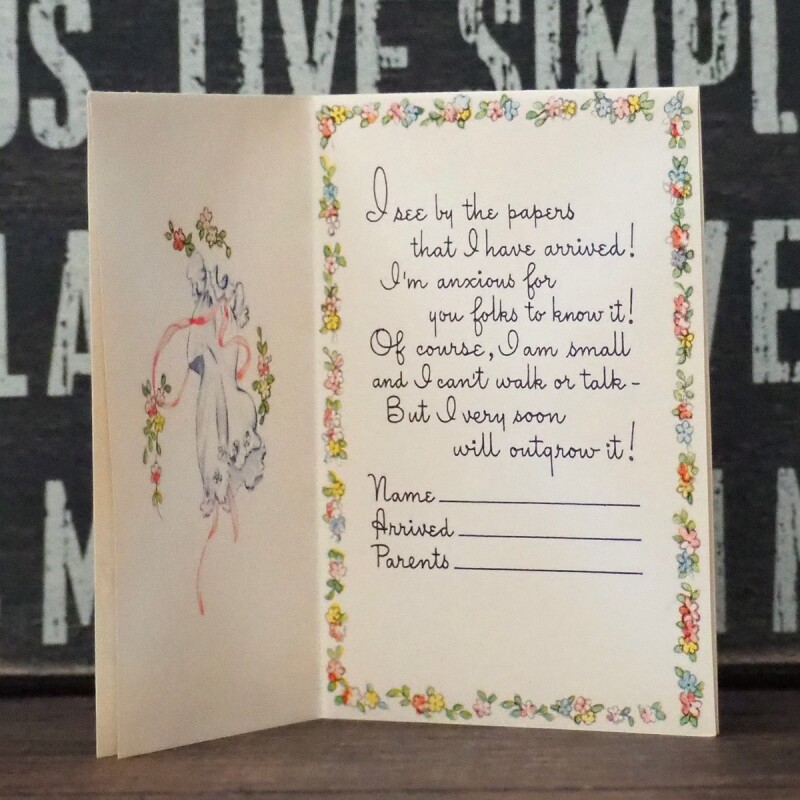 US LIVE SIMPL
I see by the papers
that I have arrived!
I'm anxious for
you folks to know it!
Of course, I am small
and I can't walk or talk -
But I very soon
will outgrow it!
Name
Arrived
Parents